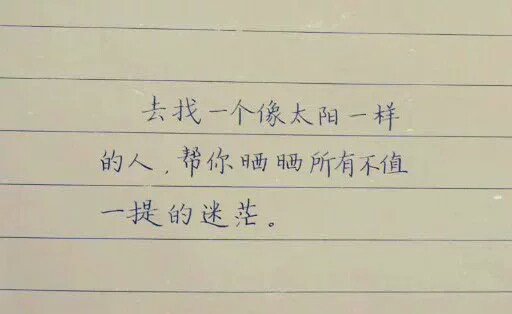 去找一个像太阳一样
的人,帮你晒晒所有不值
一提的迷茫。